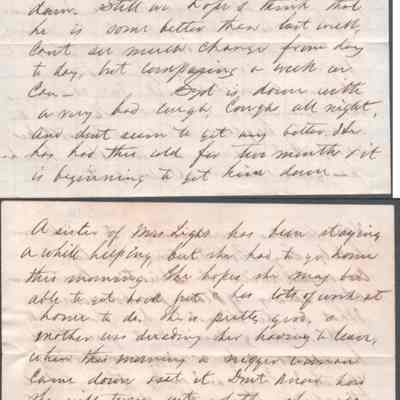 down. Still we hope & think that
he is some better than last week,
Cant see much change from day
to day, but comparing a week we
Can — is down with
a very bad cough, Coughs all night,
And dont seem to get any better. He
has had this cold for two months & it
is beginning to get him down —
A sister of Mrs has been staying
a while helping but she had to go home
this morning. She hopes she may be
able to get back but has lots of work at
home to do. She is pretty good, &
Mother was dreading her having to leave,
when this morning a nigger woman
Came down & set it. Dont know how
she will